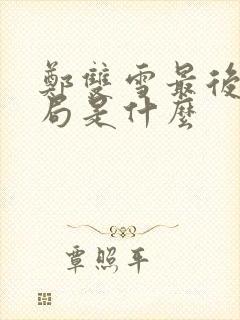 鄭雙雪最後
局是什麼
覃照平